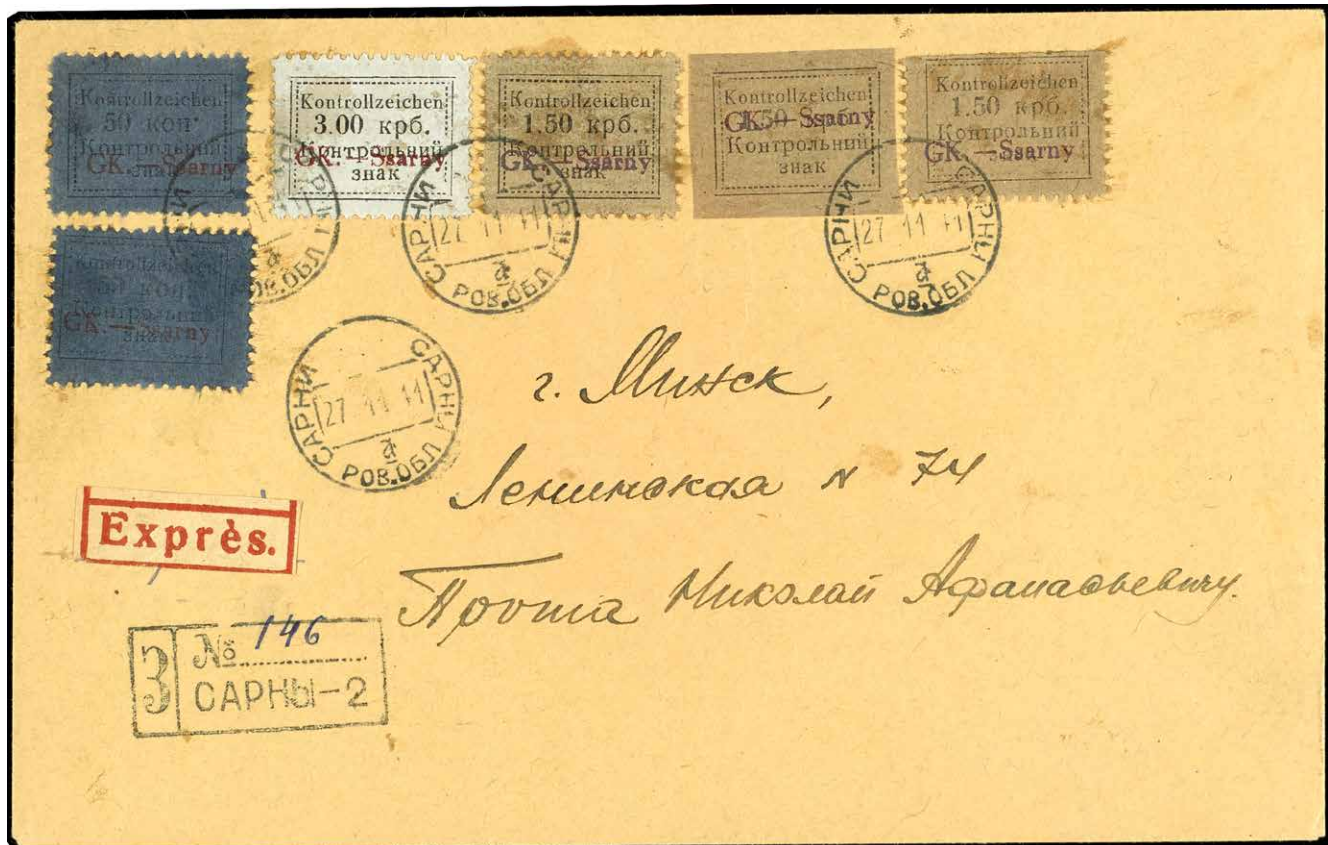 Kontrollzeichen
50 коп.
Контрольний
знак
GK. — Ssarny
Kontrollzeichen
3.00 крб.
Контрольний
знак
GK. — Ssarny
Kontrollzeichen
1.50 крб.
Контрольний
знак
GK. — Ssarny
Kontrollzeichen
1.50 крб.
Контрольний
знак
GK. — Ssarny
Kontrollzeichen
1.50 крб.
Контрольний
знак
GK. — Ssarny
Kontrollzeichen
50 коп.
Контрольний
знак
GK. — Ssarny
САРНИ САРНЫ
РОВ.ОБЛ
САРНИ САРНЫ
27 11 11
а
РОВ.ОБЛ
САРНИ САРНЫ
27 11 11
а
РОВ.ОБЛ
САРНИ САРНЫ
27 11 11
а
РОВ.ОБЛ
г. Минск,
Ленинская N 74
Николай Афанасьевичу.
Exprès.
З
№ 146
САРНЫ-2